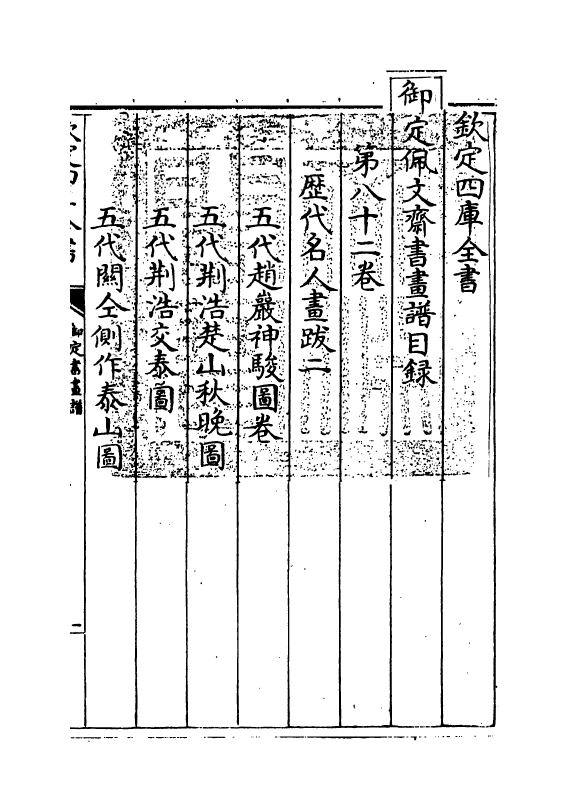 欽定四庫全書
御定佩文齋書畫譜目録
第八十二卷
歴代名人畫跋二
五代趙巖神駿圖卷
五代荆浩楚山秋晚圖
五代荆浩交泰圖
五代關仝側作泰山圖